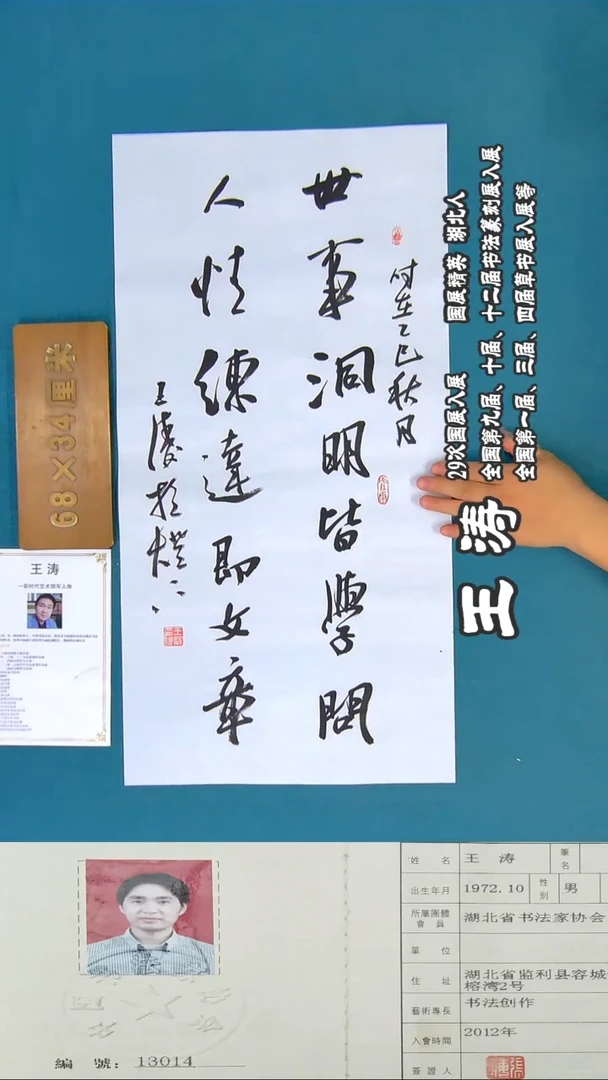 世事洞明皆學問
人情练達即文章
时在乙巳秋月
王濤
王涛
29次国展入展 国展精英 湖北人
全国第九届、十届、十二届书法篆刻展入展
全国第一届、三届、四届草书展入展等
68×34厘米
王涛
編 號: 13014
姓 名 王 涛 筆名
出生年月 1972.10 性別 男
所屬團體會員 湖北省书法家协会
單 位
住 址 湖北省监利县容城
榕湾2号
藝術專長 书法创作
入會時間 2012年
簽證人